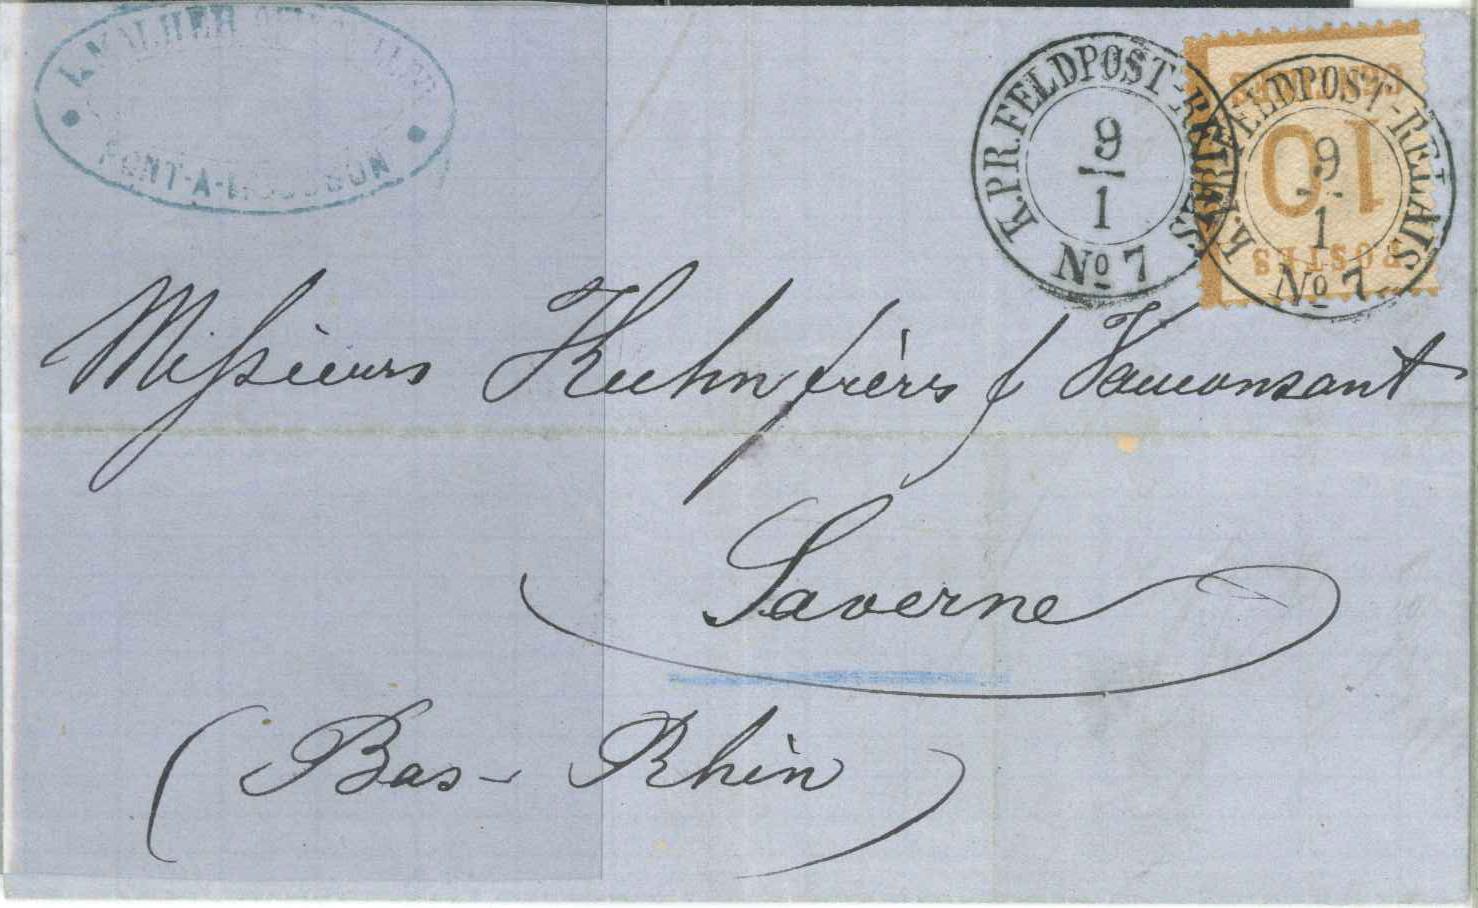 L. MALHER
PONT-A-MOUSSON
K.PR.FELDPOST-RELAIS
9
1
No 7
K.PR.FELDPOST-RELAIS
9
1
No 7
POSTES
10
CENTIMES
Messieurs Kuhn frères f
Saverne
(Bas-Rhin)